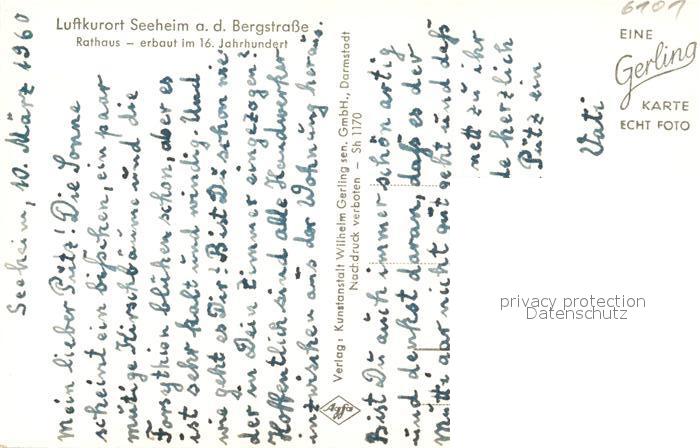 Luftkurort Seeheim a. d. Bergstraße
Rathaus – erbaut im 16. Jahrhundert
Seeheim, 10. März 1960
Mein lieber Pütz! Die Sonne
scheint ein bißchen, ein paar
mutige Kirschbäume und die
Forsythien blühen schon, aber es
ist sehr kalt und windig. Und
wie geht es Dir? Bist Du schon wie
der in Dein Zimmer eingezogen?
Hoffentlich sind alle Handwerker
inzwischen aus der Wohnung heraus.
Verlag: Kunstanstalt Wilhelm Gerling sen. GmbH., Darmstadt
Nachdruck verboten – Sh 1170
Agfa
Bist Du auch immer schön artig
und denkst daran, daß es der
Mutti gar nicht gut geht und daß
nett zu ihr
be herzlich
Pütz ein
Vati
6101
EINE
Gerling
KARTE
ECHT FOTO
privacy protection
Datenschutz